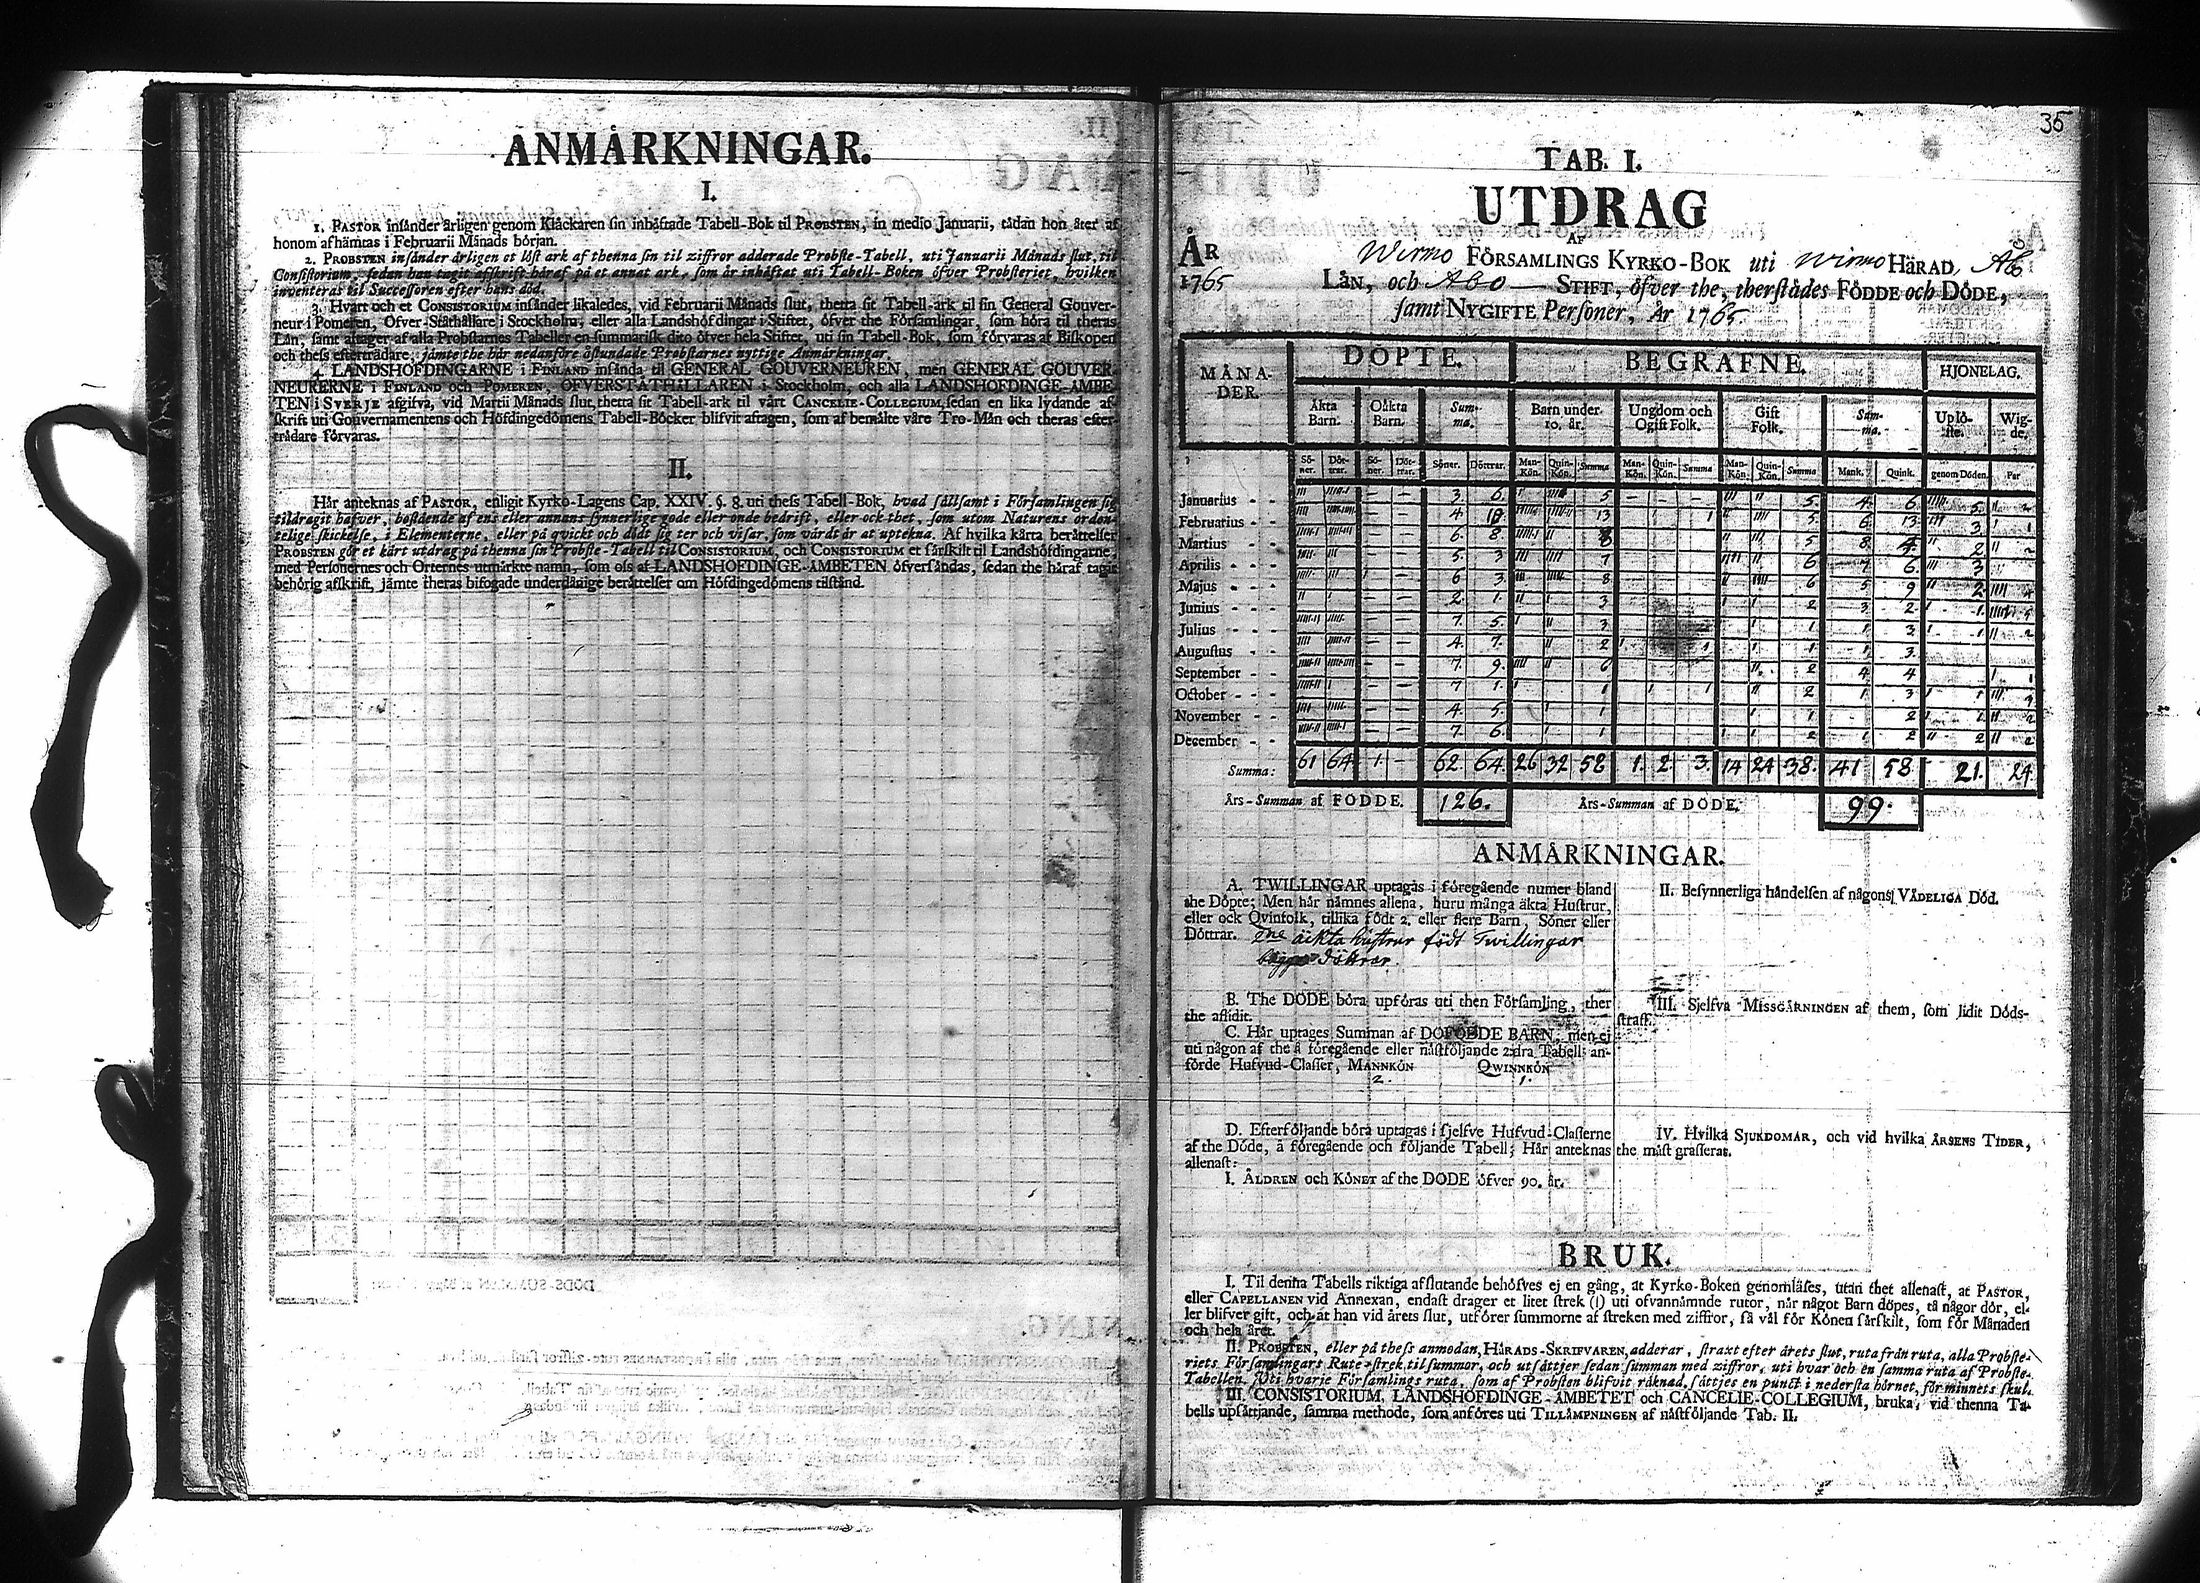 ANMÄRKNINGAR.
I.
1. PASTOR insänder årligen genom Klåckaren sin inhäftade Tabell-Bok til PROBSTEN, in medio Januarii, tådan hon åter af
honom afhämtas i Februarii Månads början.
2. PROBSTEN insänder årligen et löst ark af thenna sin til ziffror adderade Probste-Tabell, uti Januarii Månads slut, til
Consistorium, sedan han tagit afskrift håraf på et annat ark, som år inhåftat uti Tabell-Boken öfver Probsteriet, hvilken
inventeras til Successoren efter hans död.
3. Hvart och et CONSISTORIUM insänder likaledes, vid Februarii Månads slut, thetta sit Tabell-ark til sin General Gouver-
neur i Pomeren, Öfver-Ståthållare i Stockholm, eller alla Landshöfdingar i Stiftet, öfver the Församlingar, som höra til theras
Län, samt aftager af alla Probstarnes Tabeller en summarisk dito öfver hela Stiftet, uti sin Tabell-Bok, som förvaras af Biskopen
och thess efterträdare, jämte the här nedanföre åstundade Probstarnes nyttige Anmärkningar.
4. LANDSHÖFDINGARNE i FINLAND insända til GENERAL GOUVERNEUREN, men GENERAL GOUVER-
NEURERNE i FINLAND och POMEREN, ÖFVERSTÅTHÅLLAREN i Stockholm, och alla LANDSHÖFDINGE-ÄMBE-
TEN i SVERJE afgifva, vid Martii Månads slut, thetta sit Tabell-ark til vårt CANCELIE-COLLEGIUM, sedan en lika lydande af-
skrift uti Gouvernamentens och Höfdingedömens Tabell-Böcker blifvit aftagen, som af bemälte våre Tro-Män och theras efter-
trädare förvaras.
II.
Här anteknas af PASTOR, enligit Kyrko-Lagens Cap. XXIV. §. 8. uti thess Tabell-Bok, hvad sällsamt i Församlingen sig
tildragit hafver, bestående af ens eller annans synnerlige gode eller onde bedrift, eller ock thet, som utom Naturens orden-
telige skickelse, i Elementerne, eller på qvickt och dödt sig ter och visar, som värdt är at uptekna. Af hvilka kärta berättelser
PROBSTEN gör et kårt utdrag på thenna sin Probste-Tabell til CONSISTORIUM, och CONSISTORIUM et särskilt til Landshöfdingarne,
med Personernes och Orternes utmärkte namn, som oss af LANDSHÖFDINGE-ÄMBETEN öfversändas, sedan the håraf tagit
behörig afskrift, jämte theras bifogade underdånige berättelser om Höfdingedömens tilstånd.
35
TAB. I.
UTDRAG
AF
ÅR
1765
Wirmo FÖRSAMLINGS KYRKO-BOK uti Wirmo HÄRAD, Åbo
LÄN, och Abo STIFT, öfver the, therstädes FÖDDE och DÖDE,
samt NYGIFTE Personer, År 1765.
MÅNA-DER. DÖPTE. BEGRAFNE. HJONELAG.
Äkta Barn. Oäkta Barn. Summa. Barn under 10. år. Ungdom och Ogift Folk. Gift Folk. Summa. Uplöste. Wigde.
Söner. Döttrar. Söner. Döttrar. Söner. Döttrar. Man-Kön. Quin-Kön. Summa Man-Kön. Quin-Kön. Summa Man-Kön. Quin-Kön. Summa Mank. Quink. genom Döden. Par
Januarius - - 3. 6. 5 - - - 5. 4. 6. 5.
Februarius - - 4 10 13 1 5. 6. 13. 3.
Martius - - 6. 8. 8 5 8. 4. 2
Aprilis - - 5. 3 7 6 7 6. 3
Majus - - 6 3. 8 6 5 9 2.
Junius - - 2. 1. 3 2 3. 2. 1. 5
Julius - - 7. 5. 3 1 1. 3. 1. 2
Augustus - - 4. 7. 2 1 1 1. 3.
September - - 7. 9. 6 2 4 4 1
October - - 7 1. 1 1 2 1. 3 1 4
November - - 4. 5. 1 1 2 1. 2
December - - 7 6. 1 2 1. 2 2 2
Summa: 61 64 1. - 62. 64. 26 32 58 1. 2. 3. 14 24 38. 41 58. 21. 24.
Års-Summan af FÖDDE. 126. Års-Summan af DÖDE. 99.
ANMÄRKNINGAR.
A. TWILLINGAR uptagas i föregående numer bland
the Döpte; Men här nämnes allena, huru många äkta Hustrur,
eller ock Qvinfolk, tillika födt 2. eller flere Barn, Söner eller
Döttrar. äkta hustrur födt Twillingar
döttrar
B. The DÖDE böra upföras uti then Församling, ther
the aflidit.
C. Här uptages Summan af DÖFÖDDE BARN, men ej
uti någon af the å föregående eller nästföljande 2:dra Tabell an-
förde Hufvud-Classer, MANNKÖN QWINNKÖN
2. 1.
D. Efterföljande böra uptagas i sjelfve Hufvud-Classerne
af the Döde, å föregående och följande Tabell; Här anteknas
allenast:
I. ÅLDREN och KÖNET af the DÖDE öfver 90. år.
II. Besynnerliga händelsen af någons VÅDELIGA Död.
III. Sjelfva MISSGÄRNINGEN af them, som lidit Döds-
straff.
IV. Hvilka SJUKDOMAR, och vid hvilka ÅRSENS TIDER,
the mäst grasserat.
BRUK.
I. Til denna Tabells riktiga afslutande behöfves ej en gång, at Kyrko-Boken genomläses, utan thet allenast, at PASTOR,
eller CAPELLANEN vid Annexan, endast drager et litet strek (|) uti ofvannämnde rutor, när något Barn döpes, tå någor dör, el-
ler blifver gift, och at han vid årets slut, utförer summorne af streken med ziffror, så väl för Könen särskilt, som för Månaden
och hela året.
II. PROBSTEN, eller på thess anmodan, HÄRADS-SKRIFVAREN, adderar, straxt efter årets slut, ruta från ruta, alla Probste-
riets Församlingars Rute-strek til summor, och utsättjer sedan summan med ziffror, uti hvar och en samma ruta af Probste-
Tabellen. Uti hvarje Församlings ruta, som af Probsten blifvit räknad, sättjes en punct i nedersta hörnet, för minnets skul.
III. CONSISTORIUM, LANDSHÖFDINGE-ÄMBETET och CANCELIE-COLLEGIUM, bruka, vid thenna Ta-
bells upsättjande, samma methode, som anföres uti TILLÄMPNINGEN af nästföljande Tab. II.